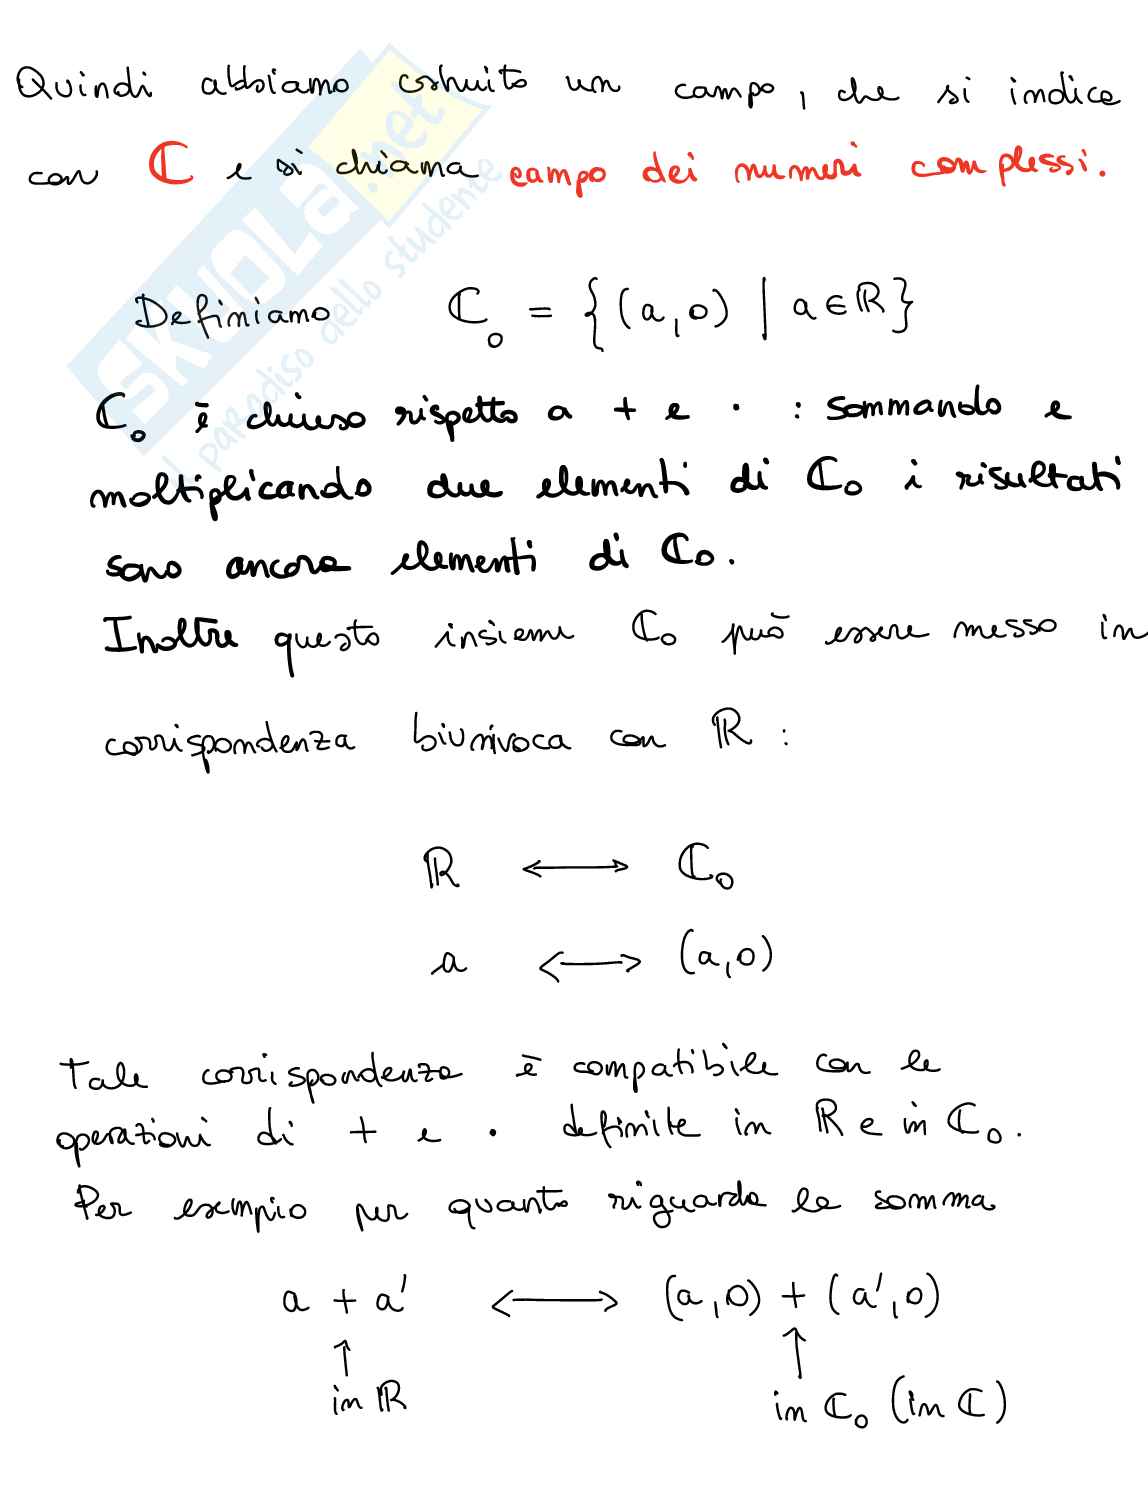 Quindi abbiamo costruito un campo, che si indica
con ℂ e si chiama campo dei numeri complessi.
Definiamo ℂ₀ = {(a,0) | a ∈ ℝ}
ℂ₀ è chiuso rispetto a + e · : sommando e
moltiplicando due elementi di ℂ₀ i risultati
sono ancora elementi di ℂ₀.
Inoltre questo insieme ℂ₀ può essere messo in
corrispondenza biunivoca con ℝ :
ℝ ⟷ ℂ₀
a ⟷ (a,0)
Tale corrispondenza è compatibile con le
operazioni di + e · definite in ℝ e in ℂ₀.
Per esempio per quanto riguarda la somma
a + a' ⟷ (a,0) + (a',0)
↑ ↑
in ℝ in ℂ₀ (in ℂ)
SKUOLA.net
il paradiso dello studente